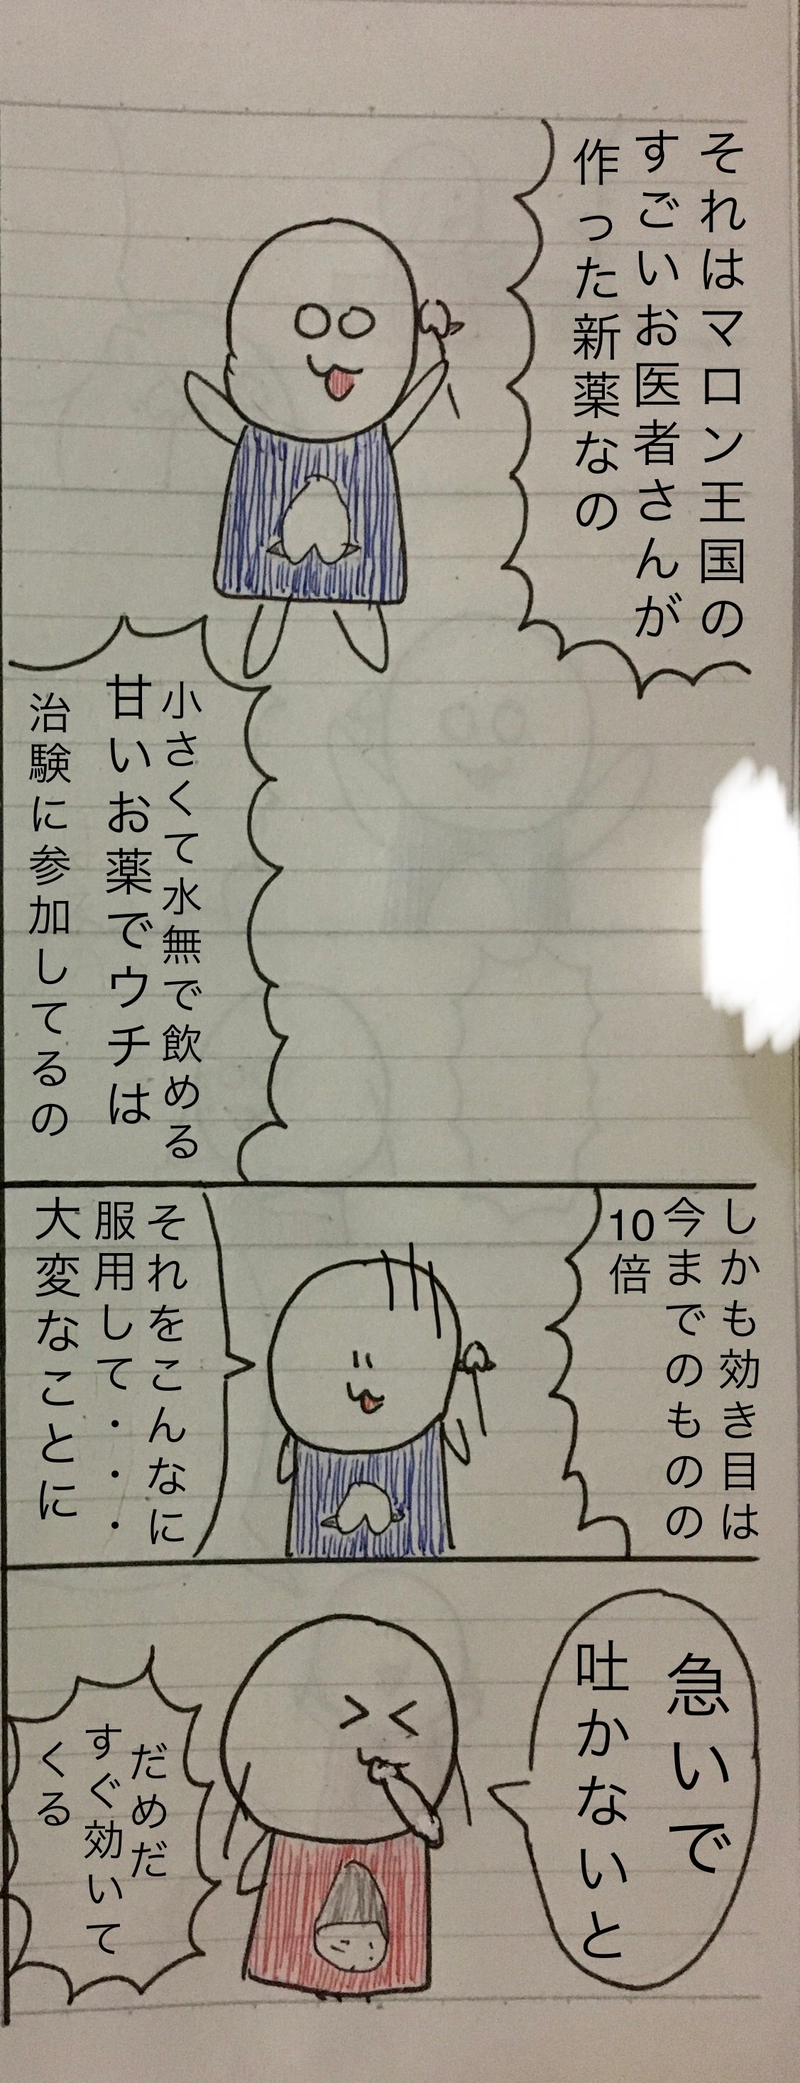 それはマロン王国の
すごいお医者さんが
作った新薬なの
小さくて水無で飲める
甘いお薬でウチは
治験に参加してるの
しかも効き目は
今までのものの
10倍
それをこんなに
服用して・・・
大変なことに
急いで
吐かないと
だめだ
すぐ効いて
くる